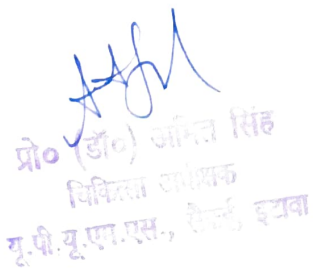 प्रो० (डॉ०) अमित सिंह
चिकित्सा अधीक्षक
यू.पी.यू.एम.एस., सैफई, इटावा